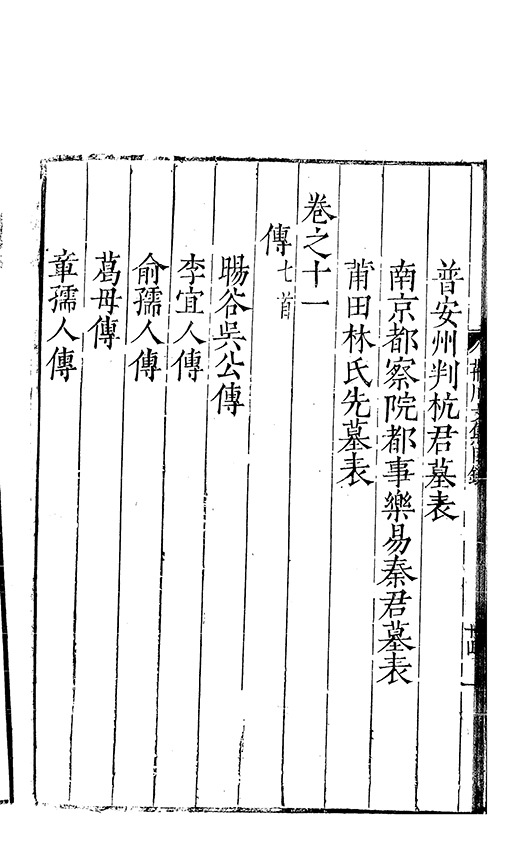 普安州判杭君墓表
南京都察院都事樂易秦君墓表
莆田林氏先墓表
卷之十一
傳七首
暘谷吳公傳
李宜人傳
俞孺人傳
葛母傳
章孺人傳